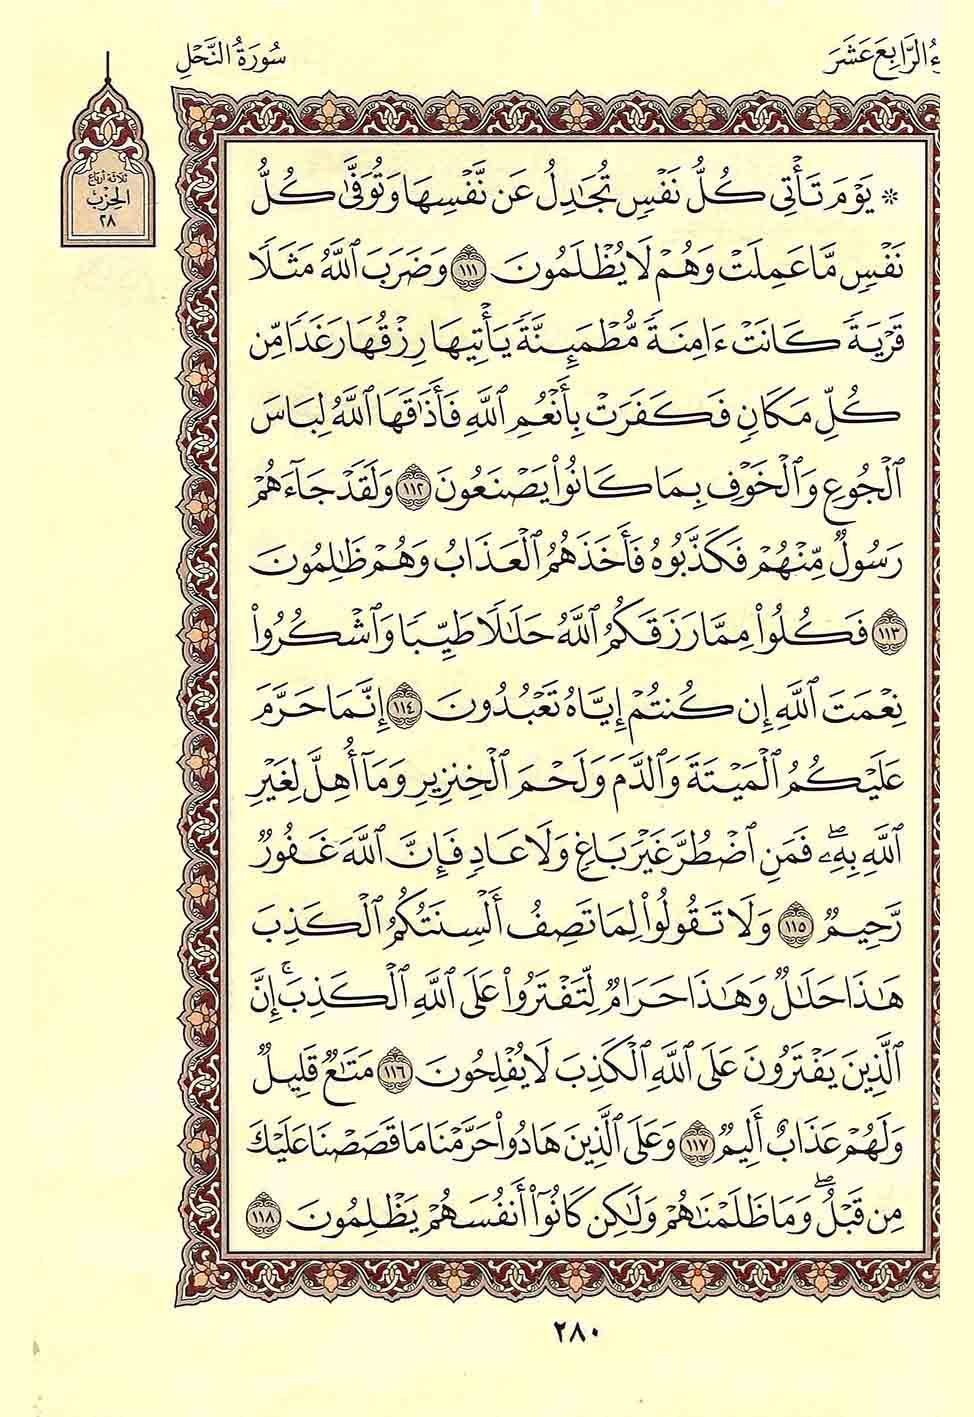 ءُ الرَّابِعَ عَشَرَ
سُورَةُ النَّحْلِ
ثلاثة أرباع
الحزب
٢٨
۞ يَوْمَ تَأۡتِي كُلُّ نَفۡسٖ تُجَٰدِلُ عَن نَّفۡسِهَا وَتُوَفَّىٰ كُلُّ
نَفۡسٖ مَّا عَمِلَتۡ وَهُمۡ لَا يُظۡلَمُونَ ١١١ وَضَرَبَ ٱللَّهُ مَثَلٗا
قَرۡيَةٗ كَانَتۡ ءَامِنَةٗ مُّطۡمَئِنَّةٗ يَأۡتِيهَا رِزۡقُهَا رَغَدٗا مِّن
كُلِّ مَكَانٖ فَكَفَرَتۡ بِأَنۡعُمِ ٱللَّهِ فَأَذَٰقَهَا ٱللَّهُ لِبَاسَ
ٱلۡجُوعِ وَٱلۡخَوۡفِ بِمَا كَانُواْ يَصۡنَعُونَ ١١٢ وَلَقَدۡ جَآءَهُمۡ
رَسُولٞ مِّنۡهُمۡ فَكَذَّبُوهُ فَأَخَذَهُمُ ٱلۡعَذَابُ وَهُمۡ ظَٰلِمُونَ
١١٣ فَكُلُواْ مِمَّا رَزَقَكُمُ ٱللَّهُ حَلَٰلٗا طَيِّبٗا وَٱشۡكُرُواْ
نِعۡمَتَ ٱللَّهِ إِن كُنتُمۡ إِيَّاهُ تَعۡبُدُونَ ١١٤ إِنَّمَا حَرَّمَ
عَلَيۡكُمُ ٱلۡمَيۡتَةَ وَٱلدَّمَ وَلَحۡمَ ٱلۡخِنزِيرِ وَمَآ أُهِلَّ لِغَيۡرِ
ٱللَّهِ بِهِۦۖ فَمَنِ ٱضۡطُرَّ غَيۡرَ بَاغٖ وَلَا عَادٖ فَإِنَّ ٱللَّهَ غَفُورٞ
رَّحِيمٞ ١١٥ وَلَا تَقُولُواْ لِمَا تَصِفُ أَلۡسِنَتُكُمُ ٱلۡكَذِبَ
هَٰذَا حَلَٰلٞ وَهَٰذَا حَرَامٞ لِّتَفۡتَرُواْ عَلَى ٱللَّهِ ٱلۡكَذِبَۚ إِنَّ
ٱلَّذِينَ يَفۡتَرُونَ عَلَى ٱللَّهِ ٱلۡكَذِبَ لَا يُفۡلِحُونَ ١١٦ مَتَٰعٞ قَلِيلٞ
وَلَهُمۡ عَذَابٌ أَلِيمٞ ١١٧ وَعَلَى ٱلَّذِينَ هَادُواْ حَرَّمۡنَا مَا قَصَصۡنَا عَلَيۡكَ
مِن قَبۡلُۖ وَمَا ظَلَمۡنَٰهُمۡ وَلَٰكِن كَانُوٓاْ أَنفُسَهُمۡ يَظۡلِمُونَ ١١٨
٢٨٠